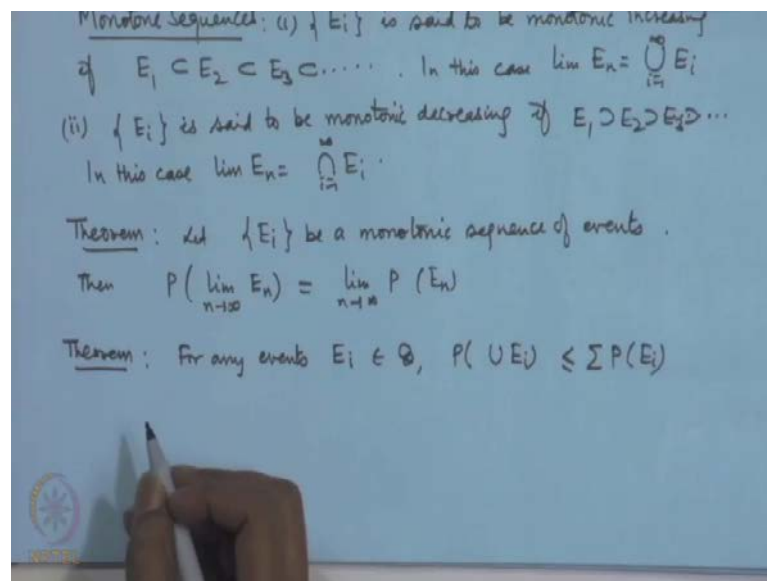 Monotone Sequences: (i) {Ei} is said to be monotonic increasing
if E₁ ⊂ E₂ ⊂ E₃ ⊂ ..... . In this case lim Eₙ = ∞∪i=1 Ei
(ii) {Ei} is said to be monotonic decreasing if E₁ ⊃ E₂ ⊃ E₃ ⊃ ...
In this case lim Eₙ = ∞∩i=1 Ei .
Theorem : Let {Ei} be a monotonic sequence of events .
Then P( lim n→∞ Eₙ) = lim n→∞ P (Eₙ)
Theorem : For any events Ei ∈ 𝓑, P( ∪Ei) ≤ ∑ P(Ei)
NPTEL